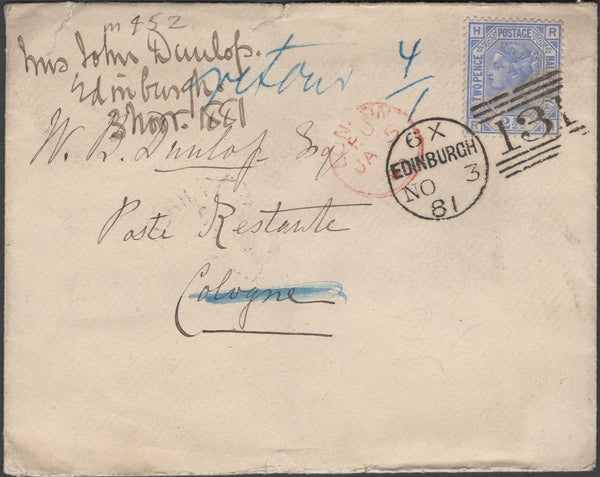 m 452
Mrs John Dunlop.
Edinburgh.
3 Nov. 1881
retour 4/1
W. B. Dunlop Esq
Poste Restante
Cologne
6 X
EDINBURGH
NO 3
81
131
H R
POSTAGE
TWO PENCE
JA 5